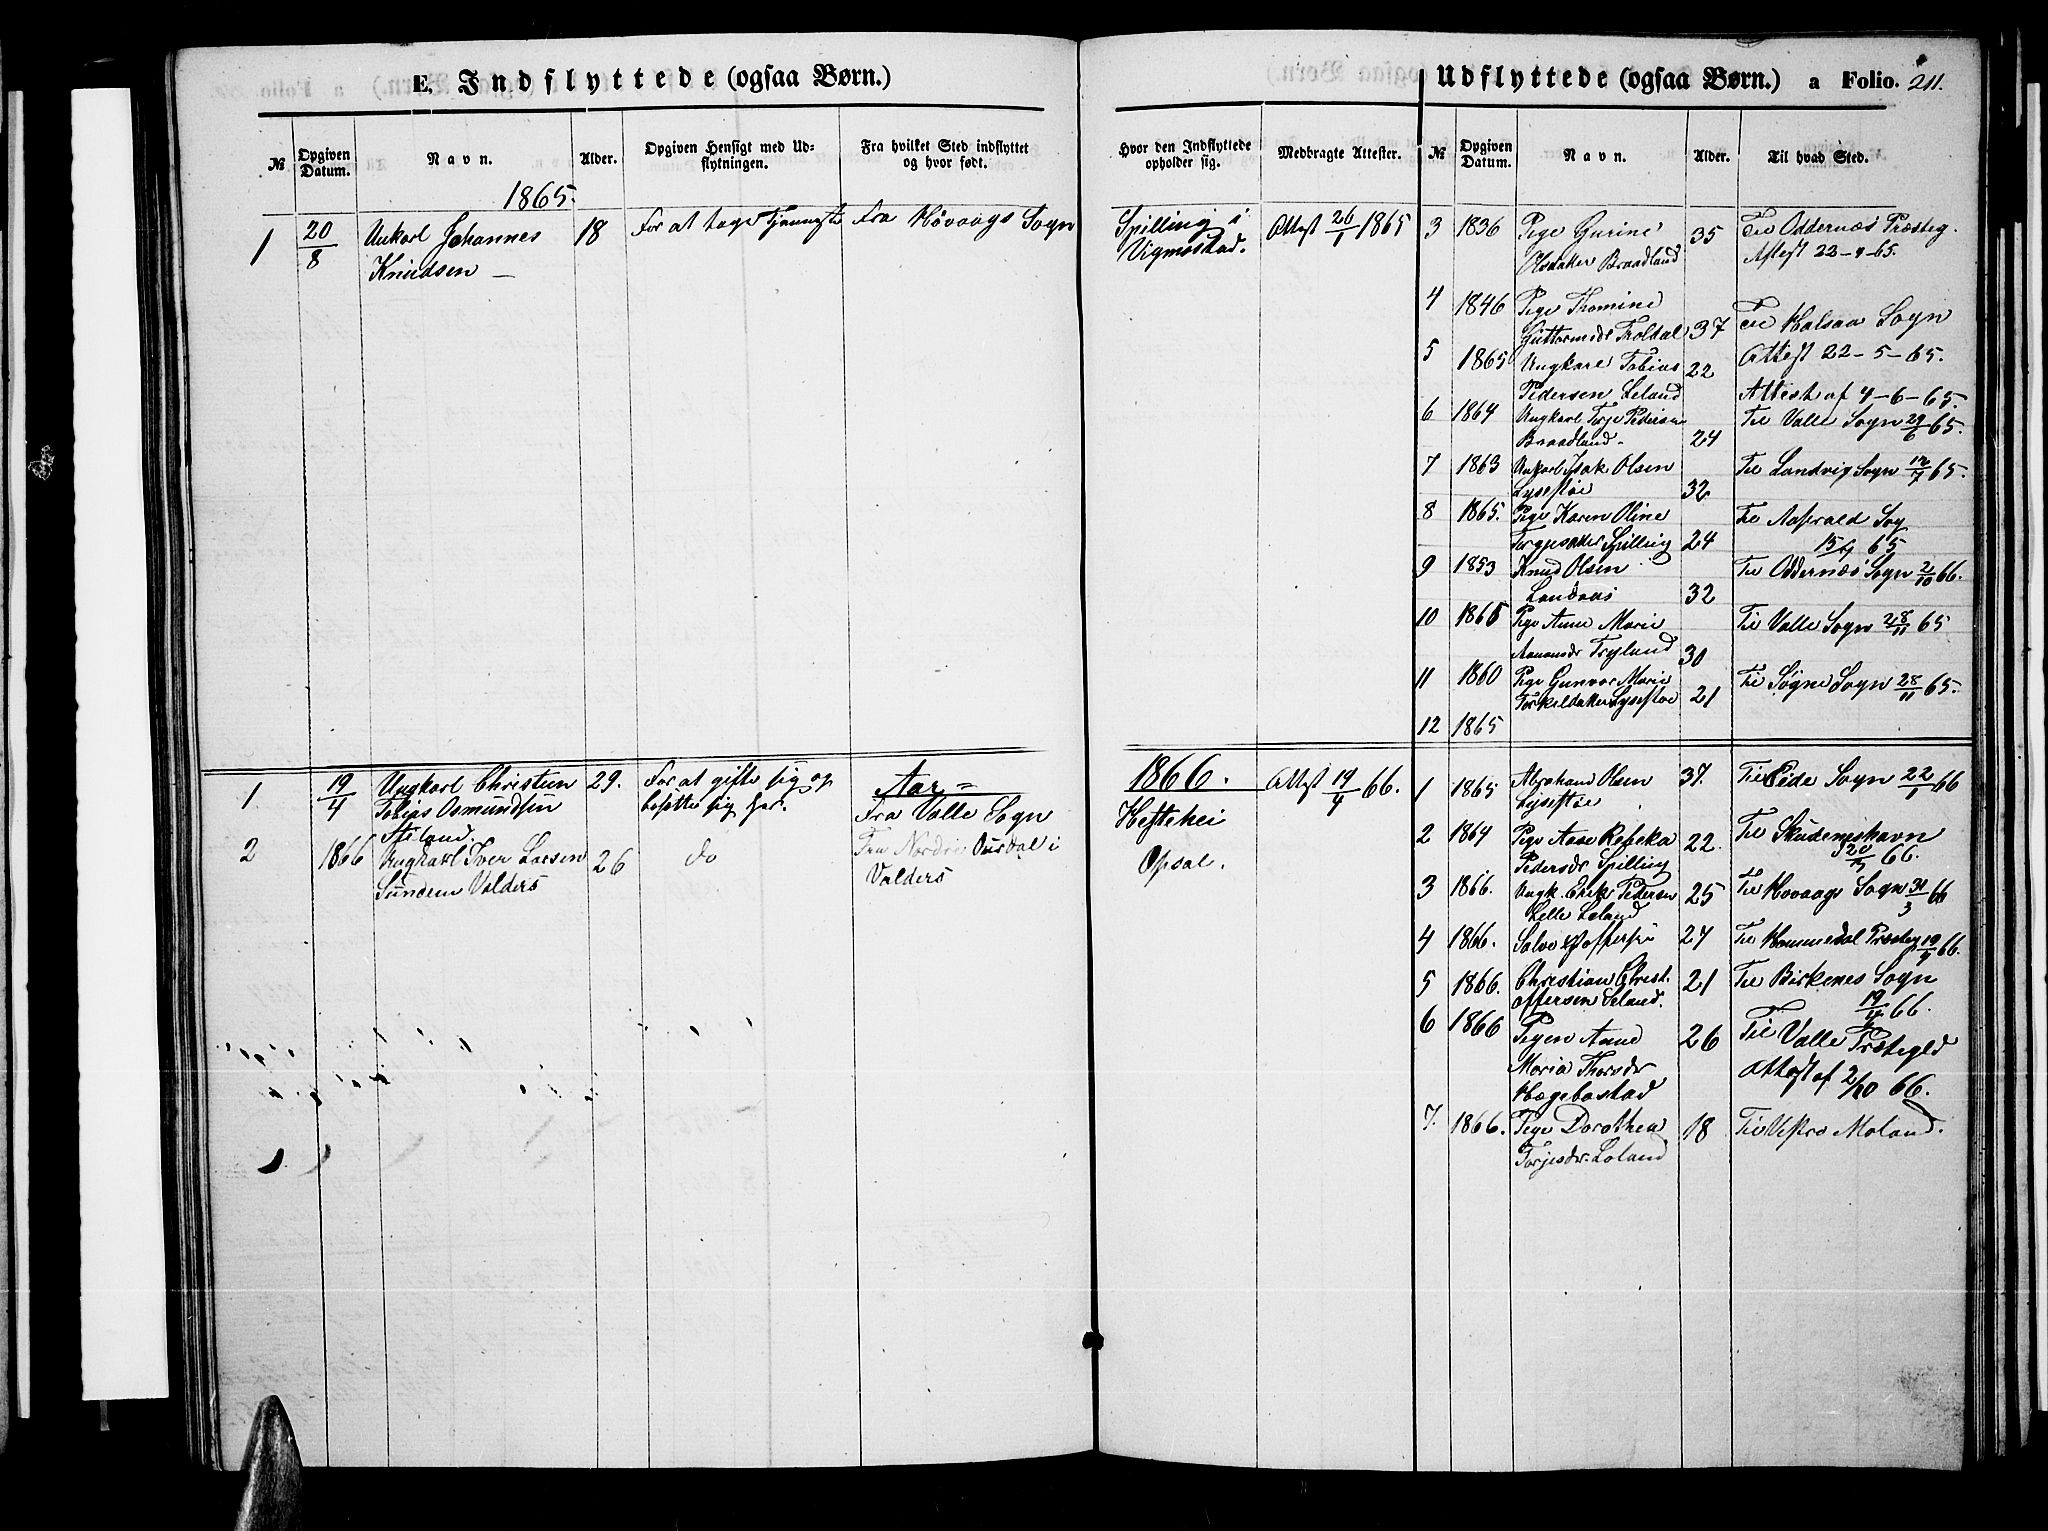 E. Indflyttede (ogsaa Børn.)
№
Opgiven Datum.
Navn.
Alder.
Opgiven Hensigt med Udflytningen.
Fra hvilket Sted indflyttet og hvor født.
1865.
1 20/8 Unkarl Johannes 18 For at tage Tjenneste Fra Høvaags Sogn
Knudsen —
1 19/4 Ungkarl Christen 29. For at gifte sig og Aar =
Tobias Osmundsen besette sig her. Fra Valle Sogn
2 1866 Ungkarl Iver Larsen 26 do Fra Nordre Ourdal i
Valders Valders
Udflyttede (ogsaa Børn.) a Folio. 211.
Hvor den Indflyttede opholder sig.
Medbragte Attester.
№
Opgiven Datum.
Navn.
Alder.
Til hvad Sted.
Spilling i Attest 26/1 1865
Vigmostad.
3 1836 Pige Gurine 35 Til Oddernæs Præsteg.
Braadland Attest 22-9-65.
4 1846 Pige Thomine
Guttormsdr Troldal 37 Til Halsaa Sogn
5 1865 Ungkarl Tobias 22 Attest 22-5-65.
Pedersen Leland Attest af 4-6-65.
6 1864 Ungkarl Torje Pedersen Til Valle Sogn 29/6 65.
Braadland 24
7 1863 Unkarl Isak Olsen Til Landvig Sogn 12/7 65.
Lysestøe 32
8 1865. Pige Karen Oline Til
Spilling 24 65
9 1853 Knud Olsen Til Oddernæs Sogn 2/10 66.
Landaas 32
10 1865 Pige Anne Marie Til Valle Sogn 28/11 65
Tryland 30
11 1860 Pige Gunvor Marie Til Søgne Sogn 28/11 65.
Lysestøe 21
12 1865
1866. Attest 19/4 66.
Heftehei
Opsal.
1 1865 Abraham Olsen 37. Til Eide Sogn 22/1 66
Lysestøe
2 1864 Pige Aase Rebeka 22. Til Skudeneshavn
Pedersdr Spilling 66.
3 1866. Ungk. Pedersen 25 Til Hovaags Sogn 31/3 66
Lille Leland
4 1866. Salve 24 Til Hommedal Præsteg 19/4 66.
5 1866. Christian Christ- 21 Til Birkenes Sogn
offersen Leland. 19/4 66.
6 1866 Pigen Anne 26 Til Valle Præstegld
Maria Thorsdr Attest af 2/10 66.
Hægebostad
7. 1866. Pige Dorothea 18 Til Vestre Moland.
Torjesdr. Leland